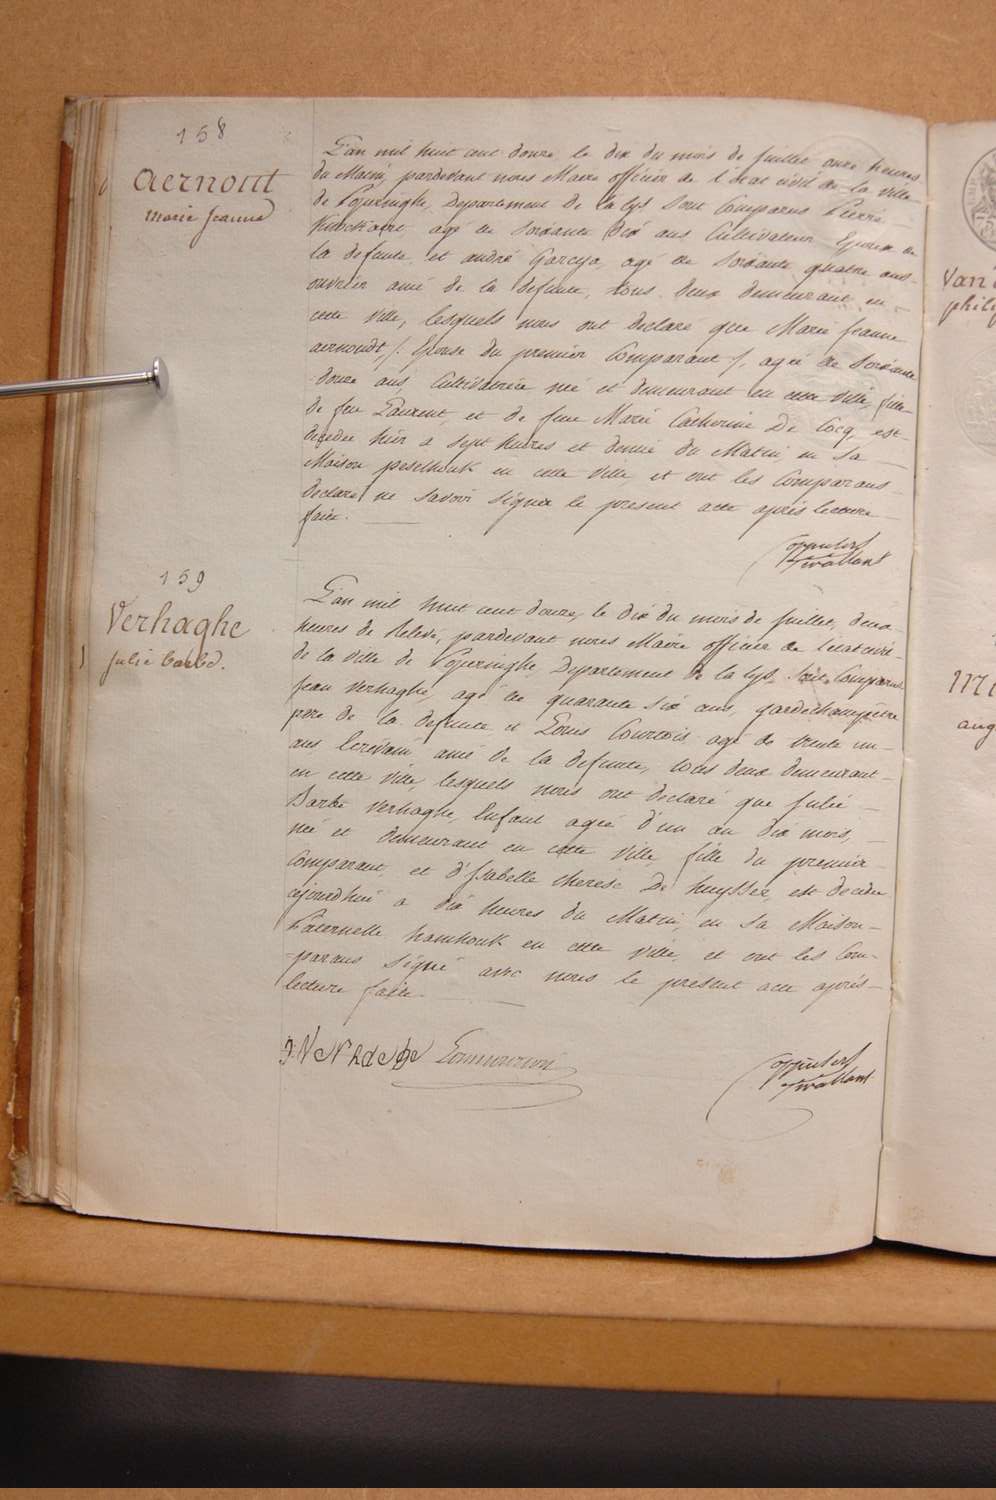 158
aernout
marie jeanne
L'an mil huit cent douze le dix du mois de Juillet onze heures
du Matin, pardevant nous Maire officier de l'état civil de la ville
de Poperinghe, Departement de la Lys sont Comparus Pierre
agé de soixante dix ans Cultivateur Epoux de
la defunte, et andré Garcya, agé de Soixante quatre ans
ouvrier ami de la defunte, tous deux demeurant en
cette ville, lesquels nous ont declaré que Marie Jeanne
aernoudt /: Epouse du premier Comparant :/, agée de soixante
douze ans, Cultivatrice née et demeurant en cette ville, fille
de feu Laurent, et de feue Marie Catherine De Cocq, est
decedée hier a sept heures et demie du Matin, en sa
Maison peselhouk en cette ville, et ont les Comparans
declaré ne savoir signer le present acte après lecture
faite.
159
Verhaghe
Julie Barbe.
L'an mil huit cent douze, le dix du mois de Juillet, deux
heures de Relevé, pardevant nous Maire officier de l'état civil
de la ville de Poperinghe, Departement de la Lys, sont Comparus
Jean Verhaghe, agé de quarante six ans, gardechampêtre
pere de la defunte et Louis Courtois agé de trente un
ans Ecrivain, ami de la defunte, tous deux demeurant
en cette ville, lesquels nous ont declaré que Julie
Barbe Verhaghe, Enfant agée d'un an dix mois,
née et demeurant en cette ville, fille du premier
Comparant, et d'Isabelle therese De huysser, est decedée
cejourdhui a dix heures du Matin, en sa Maison
Paternelle hamhouk en cette ville, et ont les Com-
parans signé avec nous le present acte après
lecture faite.
J: Verhaeghe
Van